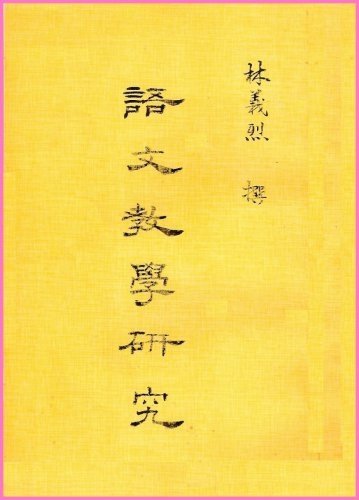 林義烈 撰
語文教學研究